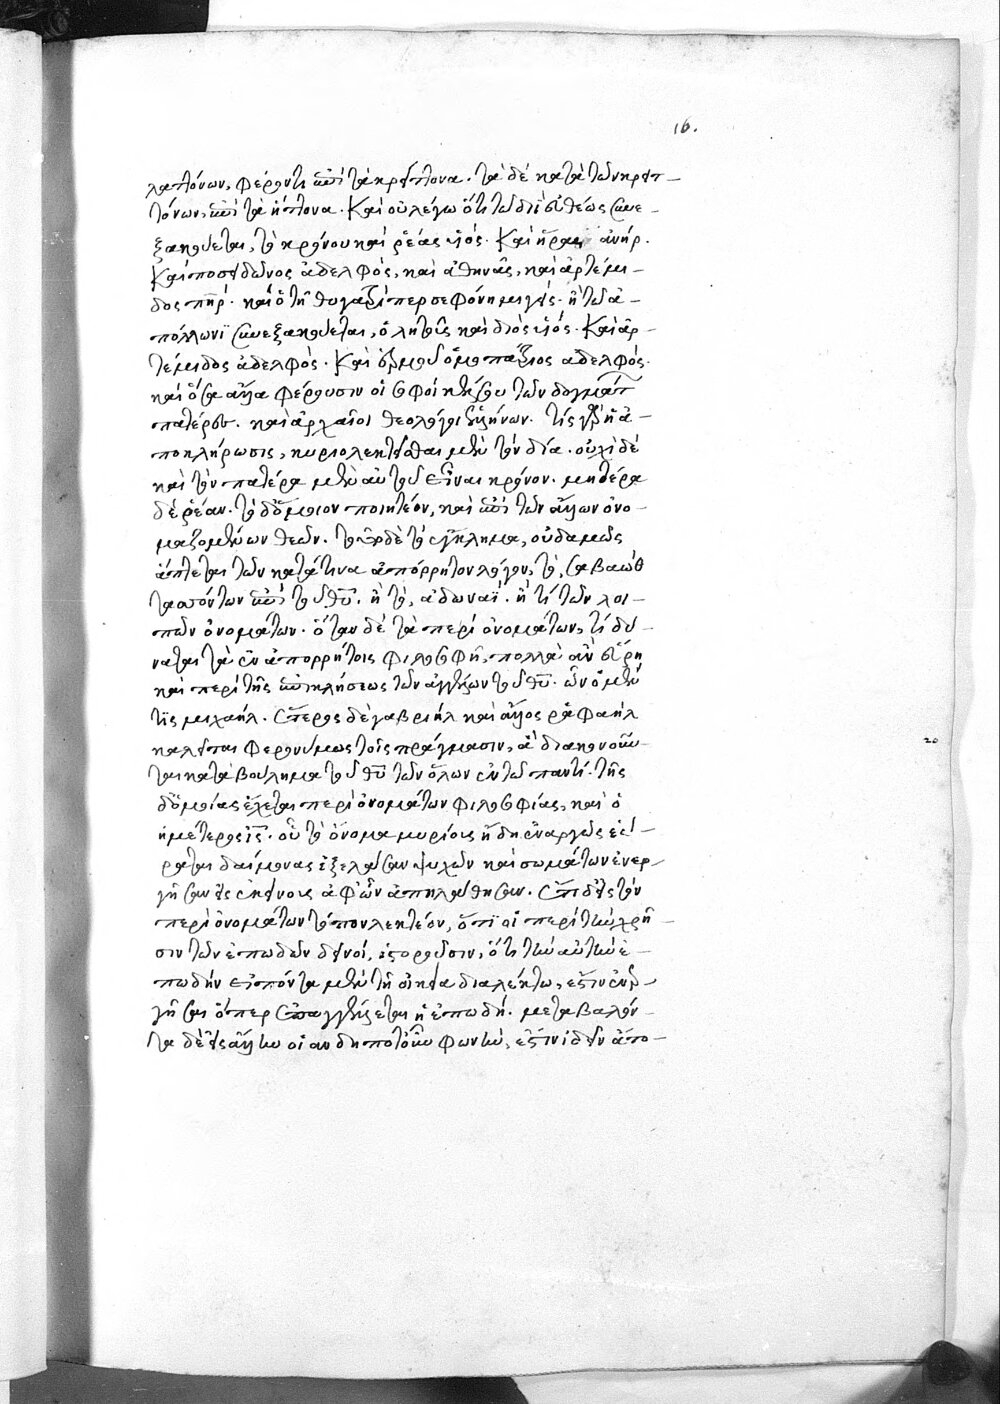 16.
λαττόνων, φέροντι ἐπὶ τὰ κρείττονα. τὰ δὲ κατὰ τῶν κρειτ-
τόνων, ἐπὶ τὰ ἥττονα. Καὶ οὐ λέγω ὅτι τῷ διῒ εὐθέως συνε-
ξακούεται, τὸ κρόνου καὶ ῥέας υἱός. Καὶ ἥρας ἀνήρ.
Καὶ ποσειδῶνος ἀδελφός, καὶ ἀθηνᾶς, καὶ ἀρτέμι-
δος πατήρ. καὶ ὅτι τῇ θυγατρὶ περσεφόνῃ μιγείς. ἢ τῷ ἀ-
πόλλωνι συνεξακούεται, ὁ λητοῦς καὶ διὸς υἱός. Καὶ ἀρ-
τέμιδος ἀδελφός. Καὶ ἑρμοῦ ὁμοπάτριος ἀδελφός.
καὶ ὅσα ἄλλα φέρουσιν οἱ σοφοὶ κέλσου τῶν δογμάτ
πατέρες. καὶ ἀρχαῖοι θεολόγοι ἑλλήνων. τίς γὰρ ἡ ἀ-
ποκλήρωσις, κυριολεκτεῖσθαι μὲν τὸν δία. οὐχὶ δὲ
καὶ τὸν πατέρα μὲν αὐτοῦ εἶναι κρόνον. μητέρα
δὲ ῥέαν. τὸ δ' ὅμοιον ποιητέον, καὶ ἐπὶ τῶν ἄλλων ὀνο-
μαζομένων θεῶν. τοῦτο δὲ τὸ ἔγκλημα, οὐδαμῶς
ἅπτεται τῶν κατά τινα ἀπόρρητον λόγον, τὸ, σαβαὼθ
τασσόντων ἐπὶ τοῦ θῦ. ἢ τὸ, ἀδωναΐ. ἤ τι τῶν λοι-
πῶν ὀνομάτων. ὅταν δὲ τὰ περὶ ὀνομάτων, τὶ δύ-
ναται τὰ ἐν ἀπορρήτοις φιλοσοφῇ, πολλὰ ἂν εὕρῃ
καὶ περὶ τῆς ἐπικλήσεως τῶν ἀγγέλων τοῦ θῦ. ὧν ὁ μέν
τις μιχαήλ. ἕτερος δὲ γαβριὴλ καὶ ἄλλος ῥαφαὴλ
καλεῖται φερωνύμως τοῖς πράγμασιν, ἃ διακονοῦν-
ται κατὰ βούλημα τοῦ θῦ τῶν ὅλων ἐν τῷ παντί. τῆς
δ' ὁμοίας ἔχεται περὶ ὀνομάτων φιλοσοφίας, καὶ ὁ
ἡμέτερος ις. οὗ τὸ ὄνομα μυρίους ἤδη ἐναργῶς ἑώ-
ραται δαίμονας ἐξελάσαν ψυχῶν καὶ σωμάτων ἐνερ-
γῆσαν εἰς ἐκείνους ἀφ' ὧν ἀπηλάθησαν. ἔτι δ' εἰς τὸν
περὶ ὀνομάτων τόπον λεκτέον, ὅτι οἱ περὶ τὴν χρῆ-
σιν τῶν ἐπωδῶν δεινοί, ἱστοροῦσιν, ὅτι τὴν αὐτὴν ἐ-
πωδὴν εἰπόντα μὲν τῇ οἰκείᾳ διαλέκτω, ἔστιν ἐνερ-
γῆσαι ὅπερ ἐπαγγέλλεται ἡ ἐπωδή. μεταβαλόν-
τα δὲ εἰς ἄλλην οἱανδηποτοῦν φωνήν, ἔστιν ἰδεῖν ἄτο-
20